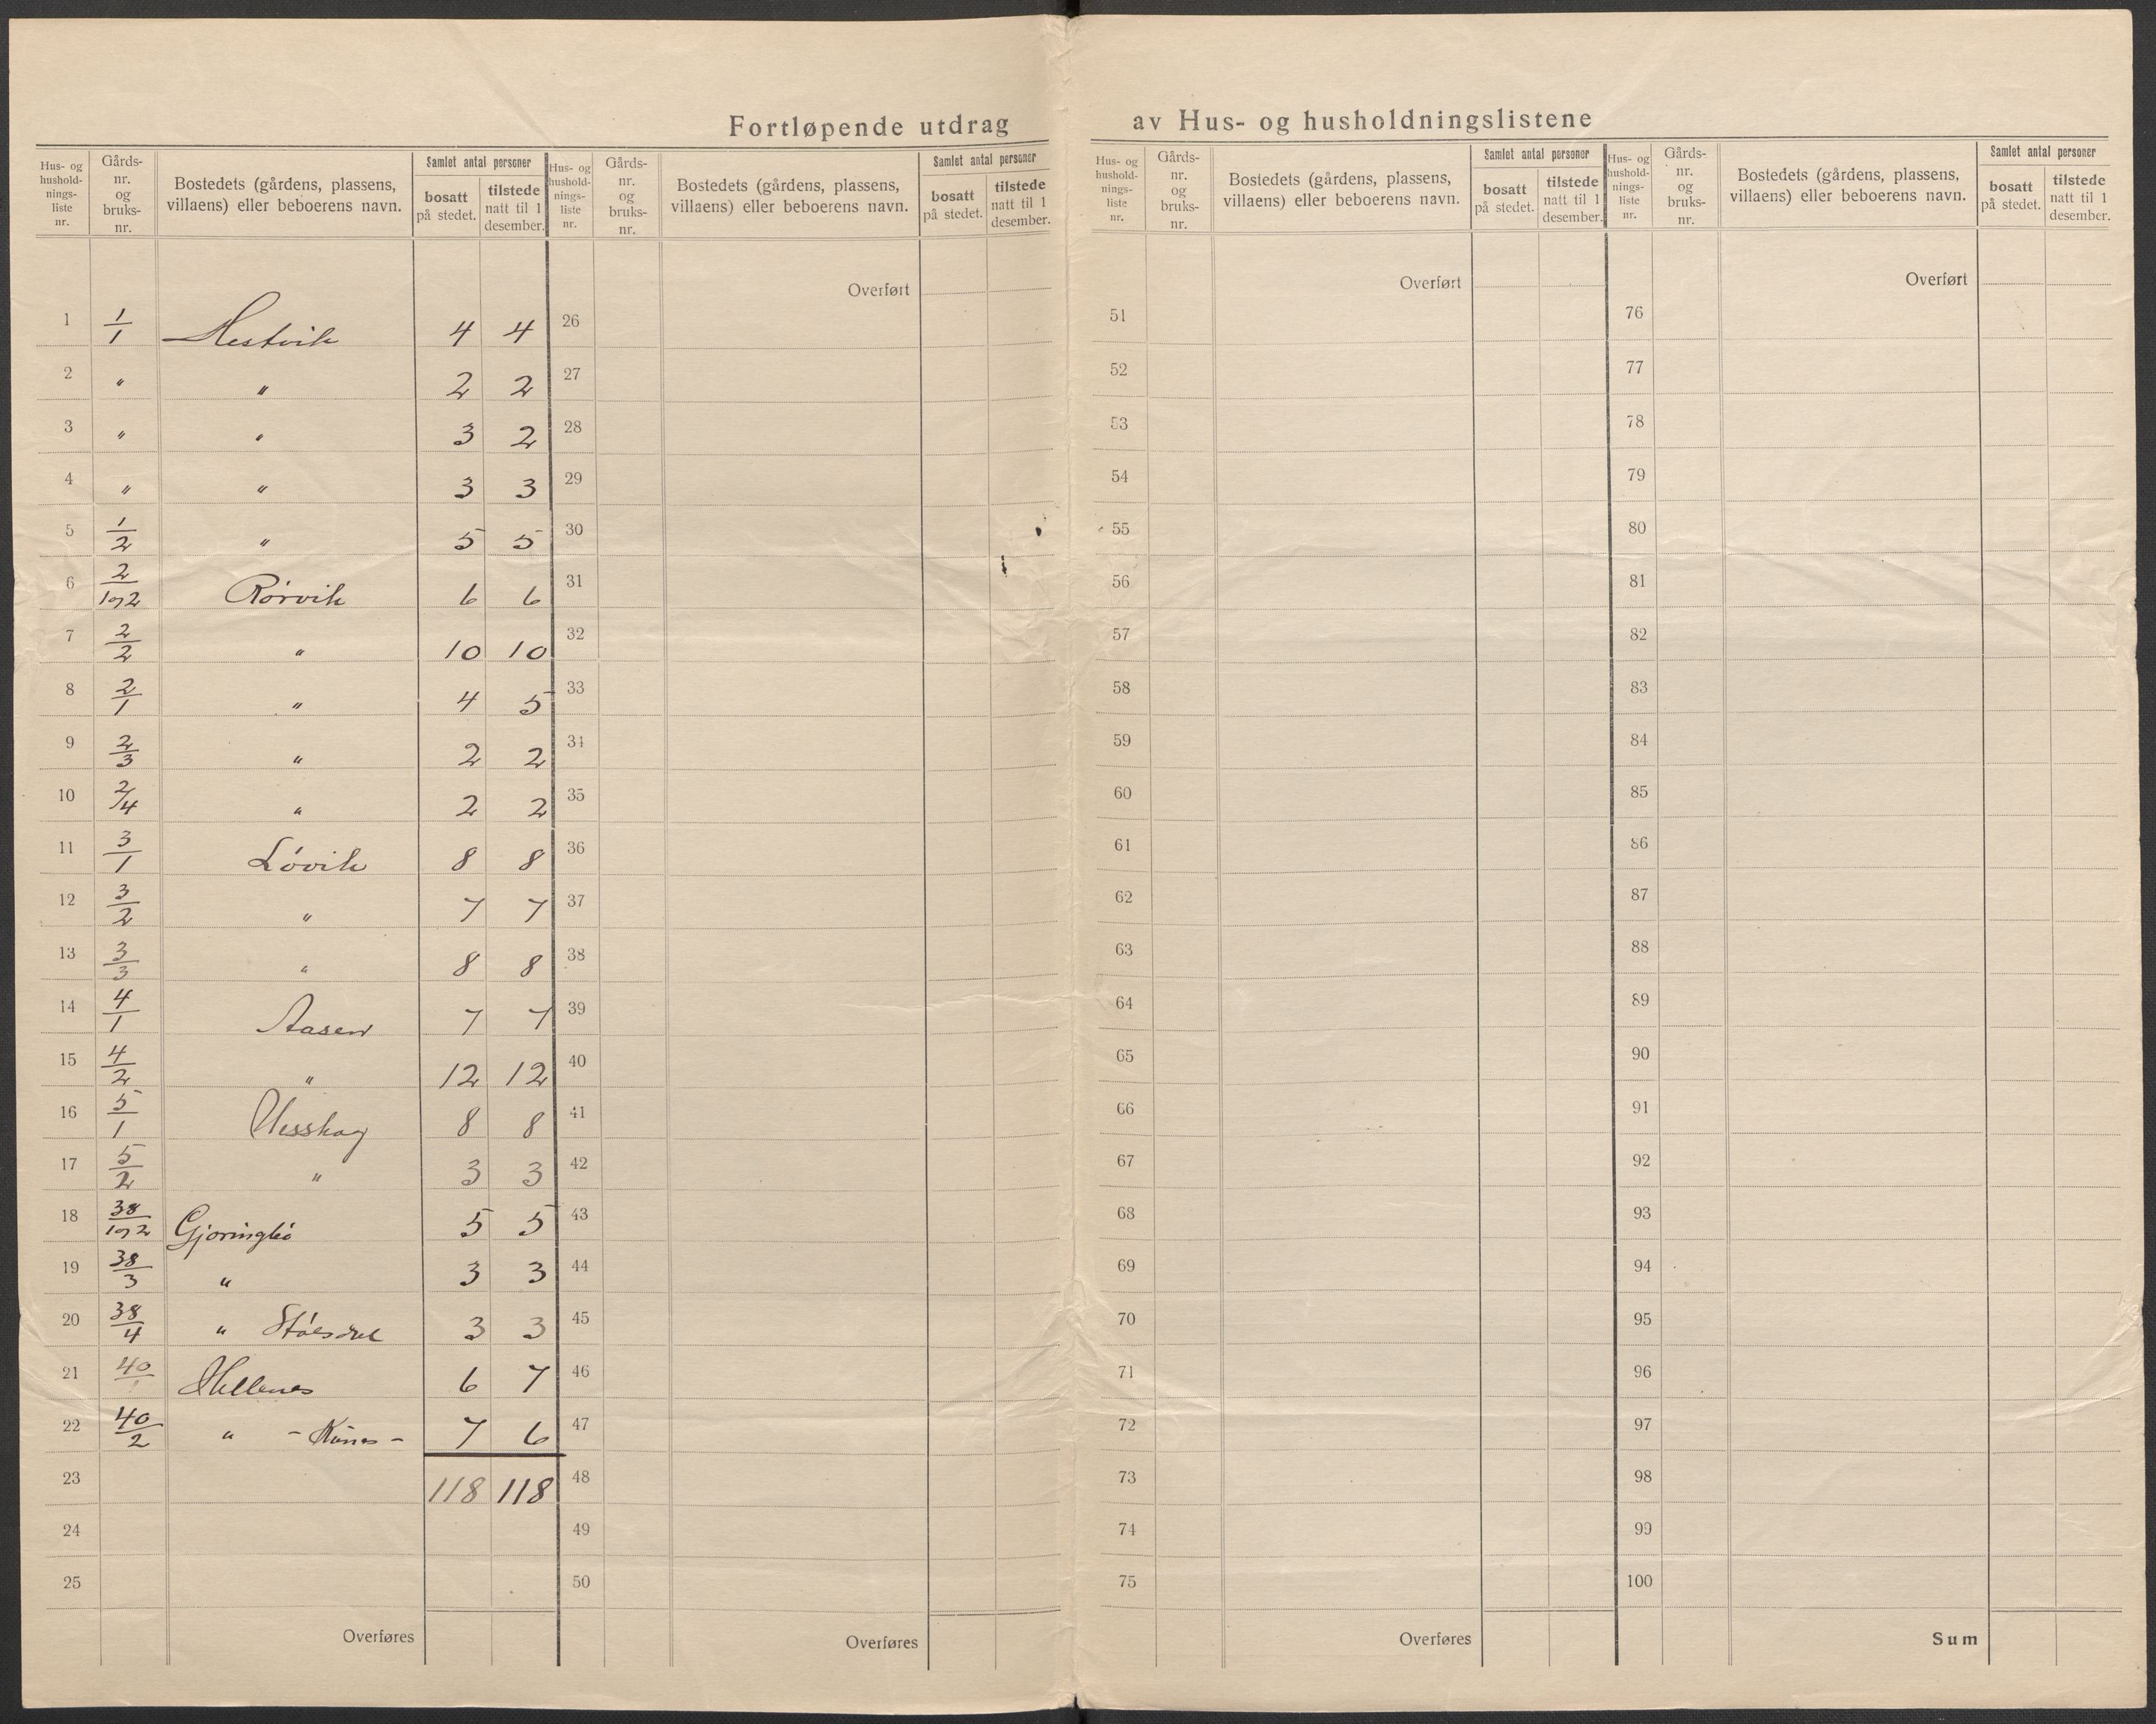 Fortløpende utdrag av Hus- og husholdningslistene
Hus- og husholdnings-liste nr. Gårds-nr. og bruks-nr. Bostedets (gårdens, plassens, villaens) eller beboerens navn. Samlet antal personer bosatt på stedet. tilstede natt til 1 desember.
1 1/1 Hestvik 4 4
2 " " 2 2
3 " " 3 2
4 " " 3 3
5 1/2 " 5 5
6 2/1 og 2 Rørvik 6 6
7 2/2 " 10 10
8 2/1 " 4 5
9 2/3 " 2 2
10 2/4 " 2 2
11 3/1 Løvik 8 8
12 3/2 " 7 7
13 3/3 " 8 8
14 4/1 Aasen 7 7
15 4/2 " 12 12
16 5/1 8 8
17 5/2 " 3 3
18 38/1 og 2 5 5
19 38/3 " 3 3
20 38/4 " 3 3
21 40/1 Hellenes 6 7
22 40/2 " 7 6
23 118 118
24
25
Overføres
Hus- og husholdnings-liste nr. Gårds-nr. og bruks-nr. Bostedets (gårdens, plassens, villaens) eller beboerens navn. Samlet antal personer bosatt på stedet. tilstede natt til 1 desember.
Overført
26
27
28
29
30
31
32
33
34
35
36
37
38
39
40
41
42
43
44
45
46
47
48
49
50
Overføres
Hus- og husholdnings-liste nr. Gårds-nr. og bruks-nr. Bostedets (gårdens, plassens, villaens) eller beboerens navn. Samlet antal personer bosatt på stedet. tilstede natt til 1 desember.
Overført
51
52
53
54
55
56
57
58
59
60
61
62
63
64
65
66
67
68
69
70
71
72
73
74
75
Overføres
Hus- og husholdnings-liste nr. Gårds-nr. og bruks-nr. Bostedets (gårdens, plassens, villaens) eller beboerens navn. Samlet antal personer bosatt på stedet. tilstede natt til 1 desember.
Overført
76
77
78
79
80
81
82
83
84
85
86
87
88
89
90
91
92
93
94
95
96
97
98
99
100
Sum